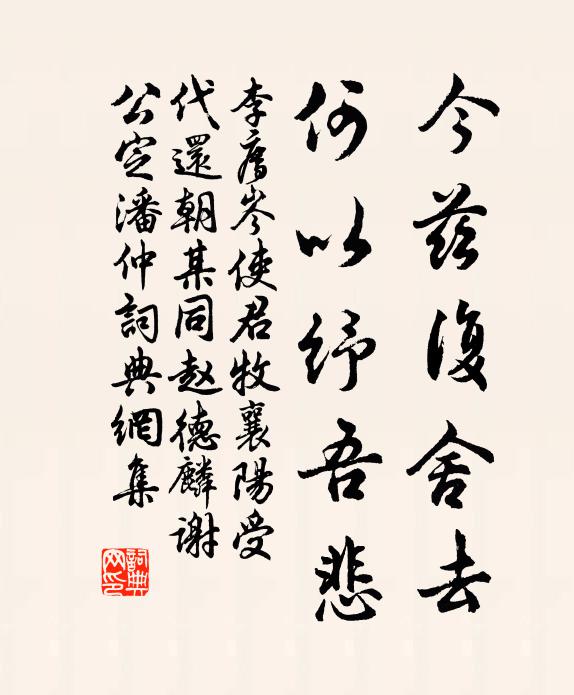 今茲復舍去
何以紓吾悲
李廌岑使君牧襄陽受
代還朝某同赵德麟謝
公定潘仲詞典網集
詞典網印